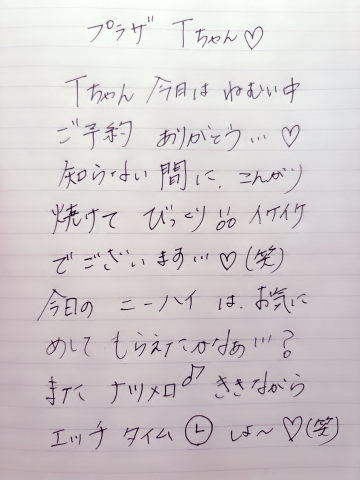 プラザ Tちゃん♡
Tちゃん 今日は ねむい中
ご予約 ありがとう…♡
知らない間に、こんがり
焼けて びっくり!!! イケイケ
でございます…♡(笑)
今日の ニーハイは、お気に
めして もらえたかなぁ…?
また ナツメロ♪ ききながら
エッチ タイム🕒 しよ〜♡(笑)